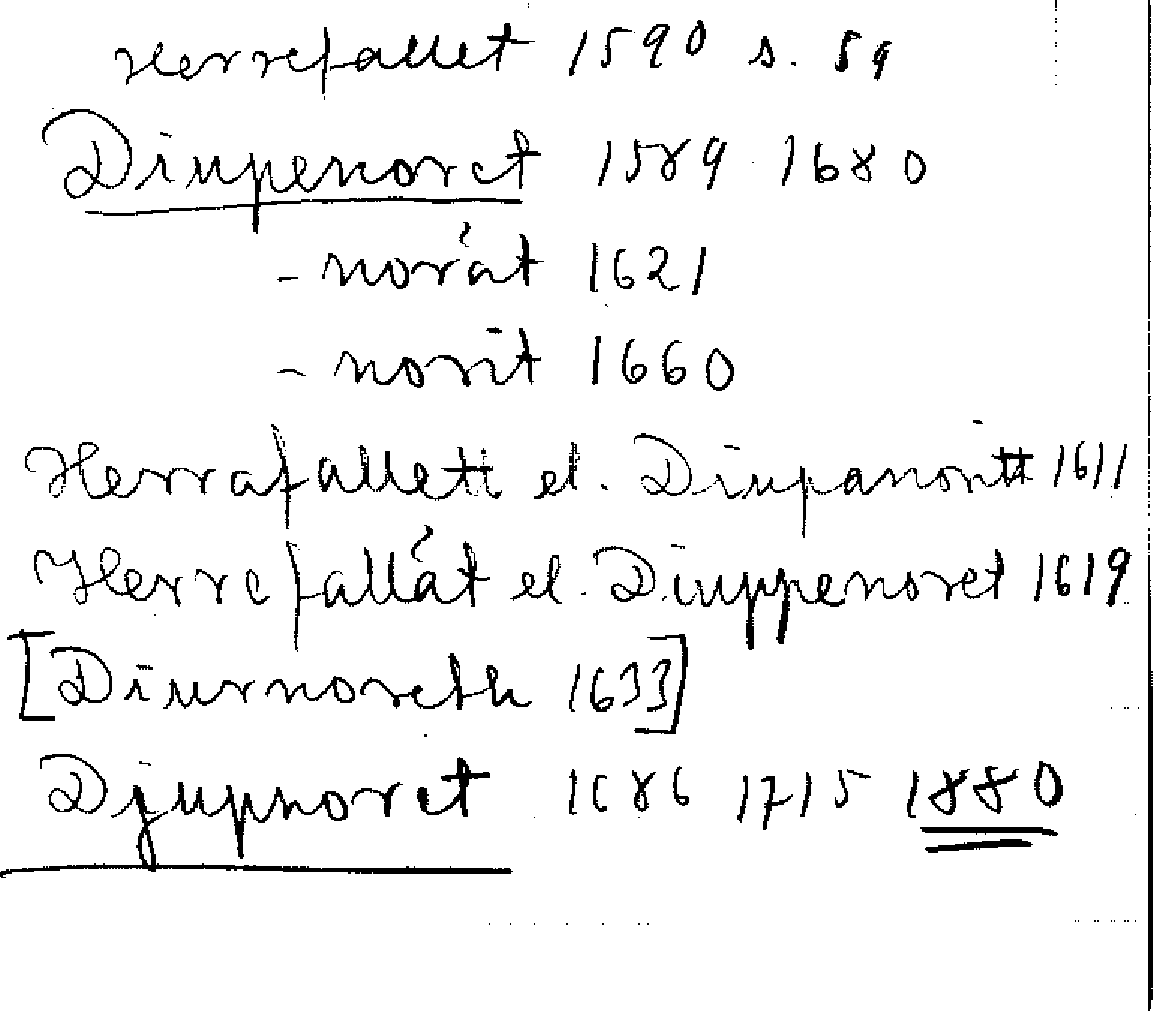 Herrefallet 1590 s. 59
Diupenoret 1589 1680
- norät 1621
- norit 1660
Herrafallett el. Diupanoritt 1611
Herrefallät el. Diuppenoret 1619
[Diurnoreth 1633]
Djupnoret 1686 1715 1880